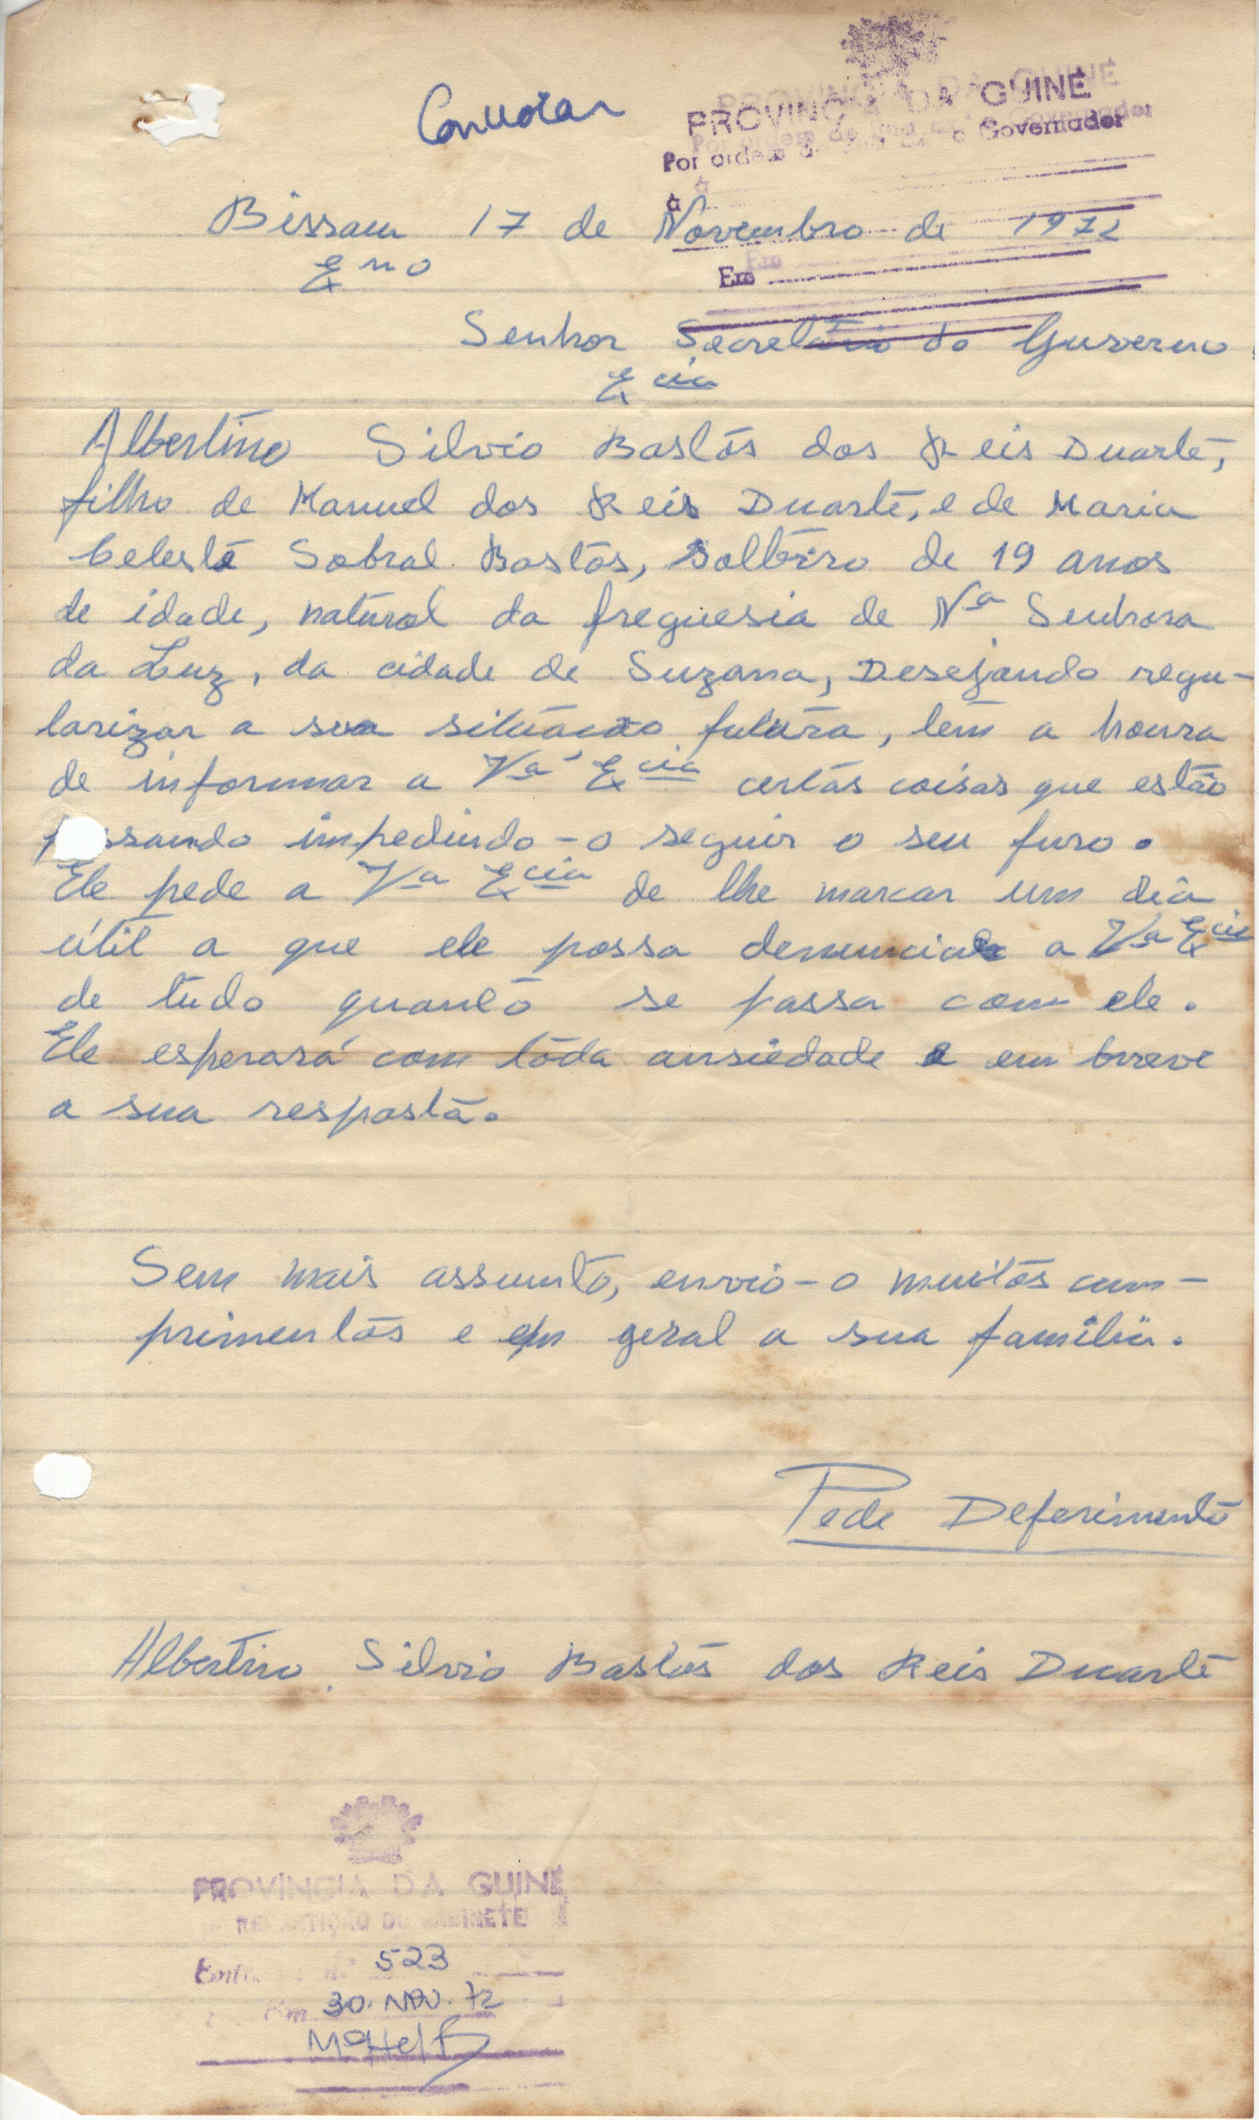 Convocar
PROVINCIA DA GUINÉ
Por ordem de o Governador
a
Em
Bissau 17 de Novembro de 1972
Exmo
Senhor Secretário do Guverno
Excia
Albertino Silvio Bastos dos Reis Duarte,
filho de Manuel dos Reis Duarte, e de Maria
Celeste Sobral Bastos, solteiro de 19 anos
de idade, natural da freguesia de Nª Senhora
da Luz, da cidade de Suzana, Desejando regu-
larizar a sua situação futura, tem a honra
de informar a Vª Excia certas coisas que estão
passando impedindo-o seguir o seu furo.
Ele pede a Vª Excia de lhe marcar um dia
útil a que ele possa denunciar a Vª Excia
de tudo quanto se passa com ele.
Ele esperará com tôda ansiedade e em breve
a sua resposta.
Sem mais assunto, envio-o muitos cum-
primentos e em geral a sua família.
Pede Deferimento
Albertino Silvio Bastos dos Reis Duarte
PROVÍNCIA DA GUINÉ
REPARTIÇÃO DO GABINETE
523
Em 30. NOV. 72